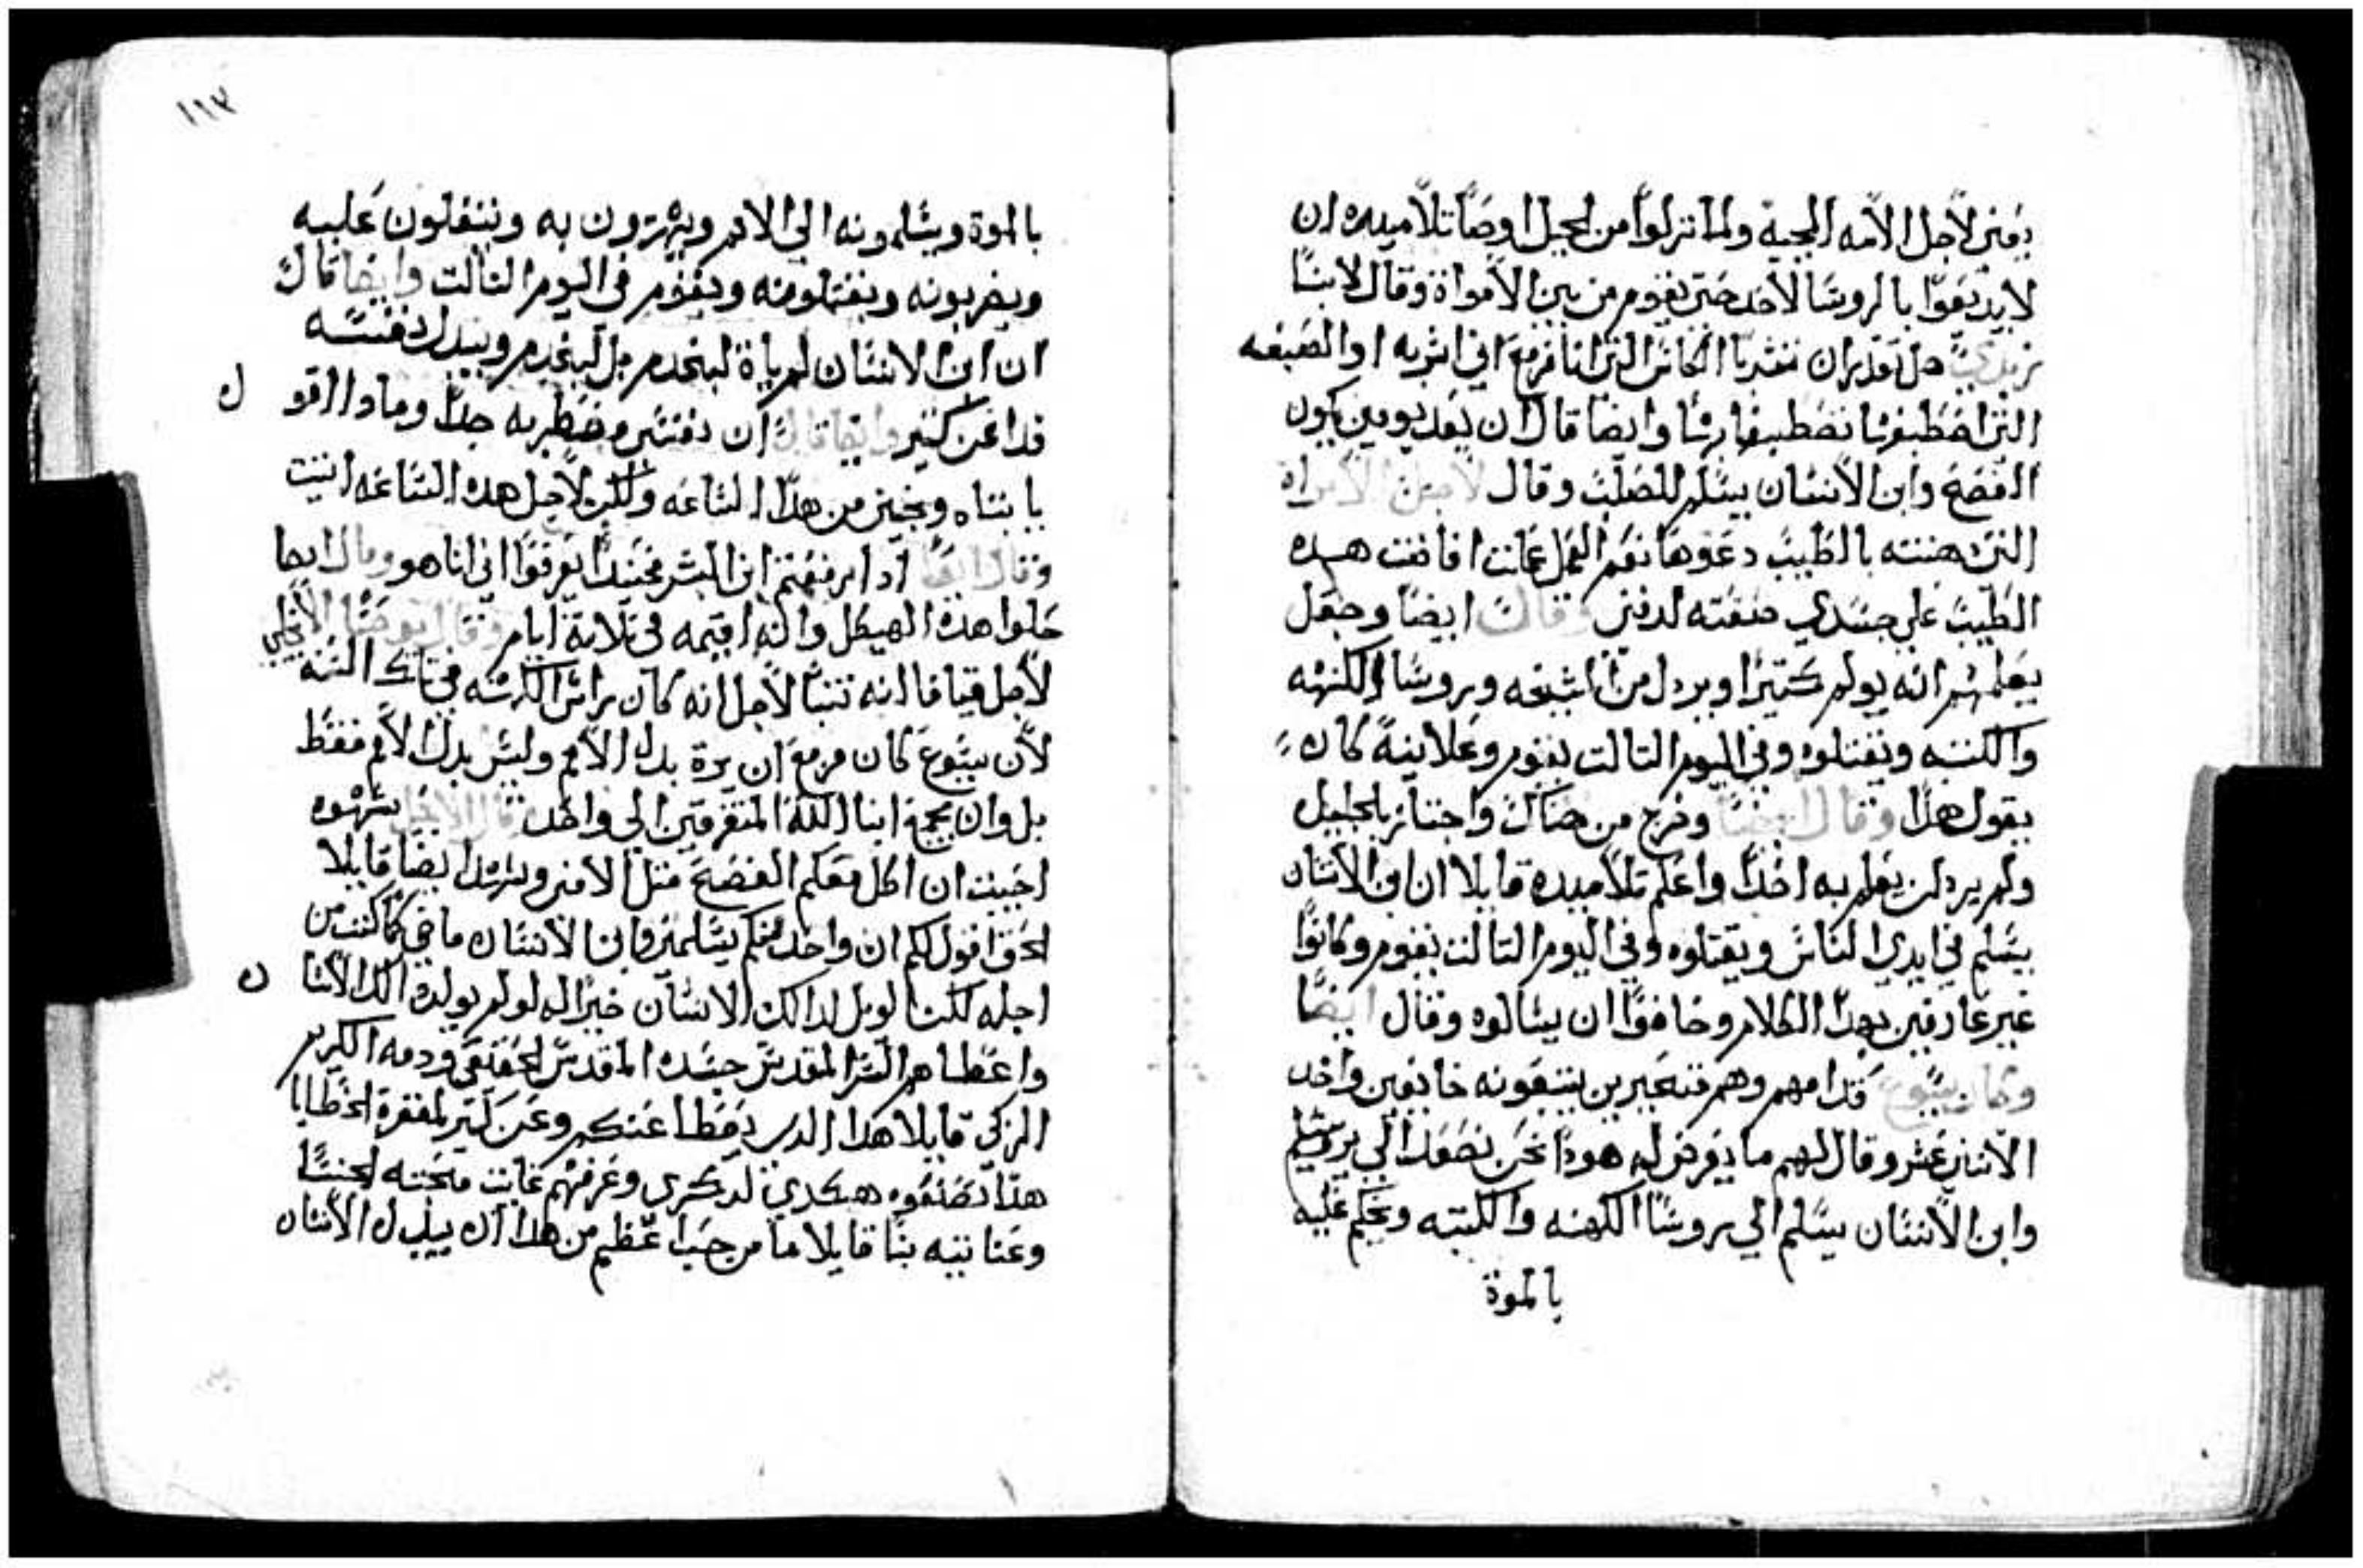 يعني لاجل الامه المحييه ولما نزلوا من الجبل اوصا تلاميده ان
لا يديعوا بالروسا لاحد حتي يقوم من بين الامواة وقال لابنا
زبدي هل تقدران تشربا الكاس التي انا مزمع اني اشربه او الصبغه
التي اصطبغها تصطبغا وايضا قال ان بعد يومين يكون
الفصح وابن الانسان يسلم للصلب وقال لاجل الامراه
التي دهنته بالطيب دعوها نعم العمل عملت افاضت هده
الطيب علي جسدي صنعته لدفني وقال ايضا وجعل
يعلمهم انه يولم كتيرا ويردل من الشيخه وروسا الكهنه
والكتبه ويقتلوه وفي اليوم التالت يقوم وعلانية كان
يقول هدا وقال ايضا وخرج من هناك واجتاز بالجليل
ولم يرد ان يعلم به احدا واعلم تلاميده قايلا ان ابن الانسان
يسلم في ايدي الناس ويقتلوه وفي اليوم التالت يقوم وكانوا
غير عارفين بهدا الكلام وخافوا ان يسالوه وقال ايضا
وكان يسوع قدامهم وهم متحيرين يتبعونه خايفين واخد
الاتنين عشر وقال لهم ما يعرض له هودا نحن نصعد الي يروشليم
وابن الانسان يسلم الي روسا الكهنه والكتبه ويحكم عليه
بالموة
١١٣
بالموة ويسلمونه الي الامم ويهزون به ويتفلون عليه
ويضربونه ويقتلونه ويقوم في اليوم التالت وايضا قال
ان ابن الانسان لم ياة ليخدم بل ليخدم ويبدل نفسه
فدا عن كتير وايضا قال ان نفسي مضطربه جدا وماداا اقول
يا ابتاه ونجيني من هدا الساعه ولكن لاجل هده الساعه اتيت
وقال ايضا ادا رفعتم ابن البشر فحيندا يعرفوا اني انا هو وقال ايضا
حلوا هدا الهيكل وانا اقيمه في تلاتة ايام وقال يوحنا الانجلي
لاجل قيافا انه تنبا لاجل انه كان راس الكهنه في تلك السنه
لان يسوع كان مزمع ان يموة بدل الامم وليس بدل الامم فقط
بل وان يجمع ابنا الله المتفرقين الي واحد قال الانجيل شهوه
احببت ان اكل معكم الفصح قبل الامي وشهد ايضا قايلا
الحق اقول لكم ان واحد منكم يسلمني وابن الانسان ماضي كما كتب من
اجله لكن الويل لدالك الانسان خيرا له لو لم يولد دالك الانسان
واعطاهم السر المقدس جسده المقدس الحقيقي ودمه الكريم
الزكي قايلا هدا الدي يعطا عنكم وعن كتير لمغفرة الخطايا
هدا تصنعوه هكدي لدكري وعرفهم غايت محبته لجنسنا
وعنايته بنا قايلا ما من حب اعظم من هدا ان يبدل الانسان